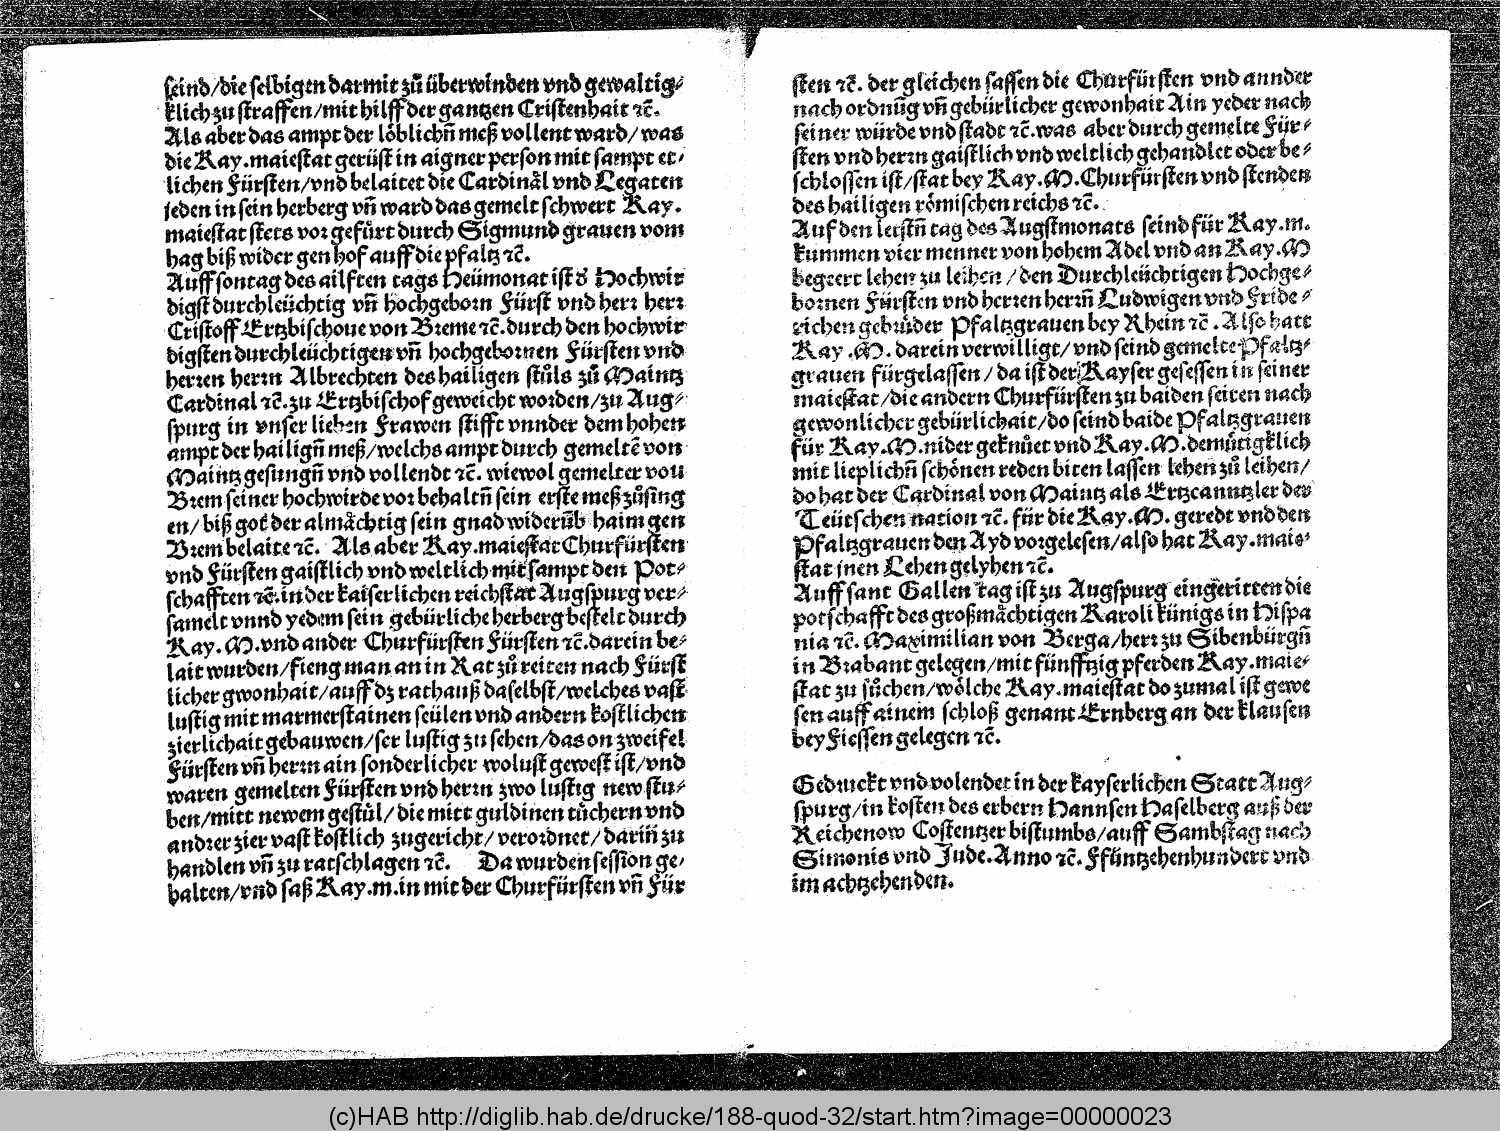 seind/die selbigen darmit zů überwinden vnd gewaltig⸗
klich zu straffen/mit hilff der gantzen Cristenhait ⁊c̃.
Als aber das ampt der löblichñ meß vollent ward/was
die Kay.maiestat gerüst in aigner person mit sampt et⸗
lichen Fürsten/vnd belaitet die Cardinål vnd Legaten
jeden in sein herberg vñ ward das gemelt schwert Kay.
maiestat stets vor gefůrt durch Sigmund grauen vom
hag biß wider gen hof auff die pfaltz ⁊c̃.
Auff sontag des ailften tags Heümonat ist d̕ Hochwir
digst durchleüchtig vñ hochgeborn Fürst vnd herr herr
Cristoff Ertzbischoue von Breme ⁊c̃.durch den hochwir
digsten durchleüchtigen vñ hochgebornen Fürsten vnd
herren herrn Albrechten des hailigen stůls zů Maintz
Cardinal ⁊c̃.zu Ertzbischof geweicht worden/zu Aug⸗
spurg in vnser lieben Frawen stifft vnnder dem hohen
ampt der hailigñ meß/welchs ampt durch gemeltẽ von
Maintz gesungñ vnd vollendt ⁊c̃. wiewol gemelter vou
Brem seiner hochwirde vor behaltñ sein erste meß zůsing
en/ biß got der almåchtig sein gnad widerũb haim gen
Brem belaite ⁊c̃. Als aber Kay.maiestat Churfürsten
vnd Fürsten gaistlich vnd weltlich mit sampt den Pot⸗
schafften ⁊c̃.in der kaiserlichen reichstat Augspurg ver⸗
samelt vnnd yedem sein gebürliche herberg bestelt durch
Kay.M.vnd ander Churfürsten Fürsten ⁊c̃.darein be⸗
lait wurden/fieng man an in Rat zů reiten nach Fürst
licher gwonhait/auff dz rathauß daselbst/welches vast
lustig mit marmerstainen seülen vnd andern kostlichen
zierlichait gebauwen/ser lustig zu sehen/das on zweifel
Fürsten vñ herrn ain sonderlicher wolust gewest ist/vnd
waren gemelten Fürsten vnd herrn zwo lustig new stu⸗
ben/mitt newem gestůl/die mitt guldinen tůchern vnd
andrer zier vast kostlich zugericht/verordnet/darin̄ zu
handlen vñ zu ratschlagen ⁊c̃. Da wurden session ge⸗
halten/vnd saß Kay.m.in mit der Churfürsten vñ Für
sten ⁊c̃. der gleichen sassen die Churfürsten vnd annder
nach ordnũg vñ gebürlicher gewonhait Ain yeder nach
seiner würde vnd stadt ⁊c̃.was aber durch gemelte Für⸗
sten vnd herrn gaistlich vnd weltlich gehandlet oder be⸗
schlossen ist/stat bey Kay.M.Churfürsten vnd stenden
des hailigen römischen reichs ⁊c̃.
Auf den letstñ tag des Augstmonats seind für Kay.m.
kummen vier menner von hohem Adel vnd an Kay.M
begeert lehen zu leihen/den Durchleüchtigen Hochge⸗
bornen Fürsten vnd herren herrñ Ludwigen vnd Fride⸗
richen gebrüder Pfaltzgrauen bey Rhein ⁊c̃. Also hatt
Kay.M. darein verwilligt/vnd seind gemelte Pfaltz⸗
grauen fürgelassen/da ist der Kayser gesessen in seiner
maiestat/die andern Churfürsten zu baiden seiten nach
gewonlicher gebürlichait/do seind baide Pfaltzgrauen
für Kay.M.nider geknůet vnd Kay.M.demůtigklich
mit lieplichñ schönen reden biten lassen lehen zů leihen/
do hat der Cardinal von Maintz als Ertzcanntzler der
Teütschen nation ⁊c̃. für die Kay.M. geredt vnd den
Pfaltzgrauen den Ayd vorgelesen/also hat Kay.maie⸗
stat jnen Lehen gelyhen ⁊c̃.
Auff sant Gallen tag ist zu Augspurg eingeritten die
potschafft des großmåchtigen Karoli künigs in Hispa
nia ⁊c̃. Maximilian von Berga/herr zu Sibenbürgñ
in Brabant gelegen/mit fünfftzig pferden Kay.maie⸗
stat zu sůchen/wölche Kay.maiestat do zumal ist gewe
sen auff ainem schloß genant Ernberg an der klausen
bey Fiessen gelegen ⁊c̃.
Gedruckt vnd volendet in der kayserlichen Statt Aug⸗
spurg/in kosten des erbern Hannsen Haselberg auß der
Reichenow Costentzer bistumbs/auff Sambstag nach
Simonis vnd Jude.Anno ⁊c̃. Ffüntzehenhundert vnd
im achtzehenden.
(c)HAB http://diglib.hab.de/drucke/188-quod-32/start.htm?image=00000023